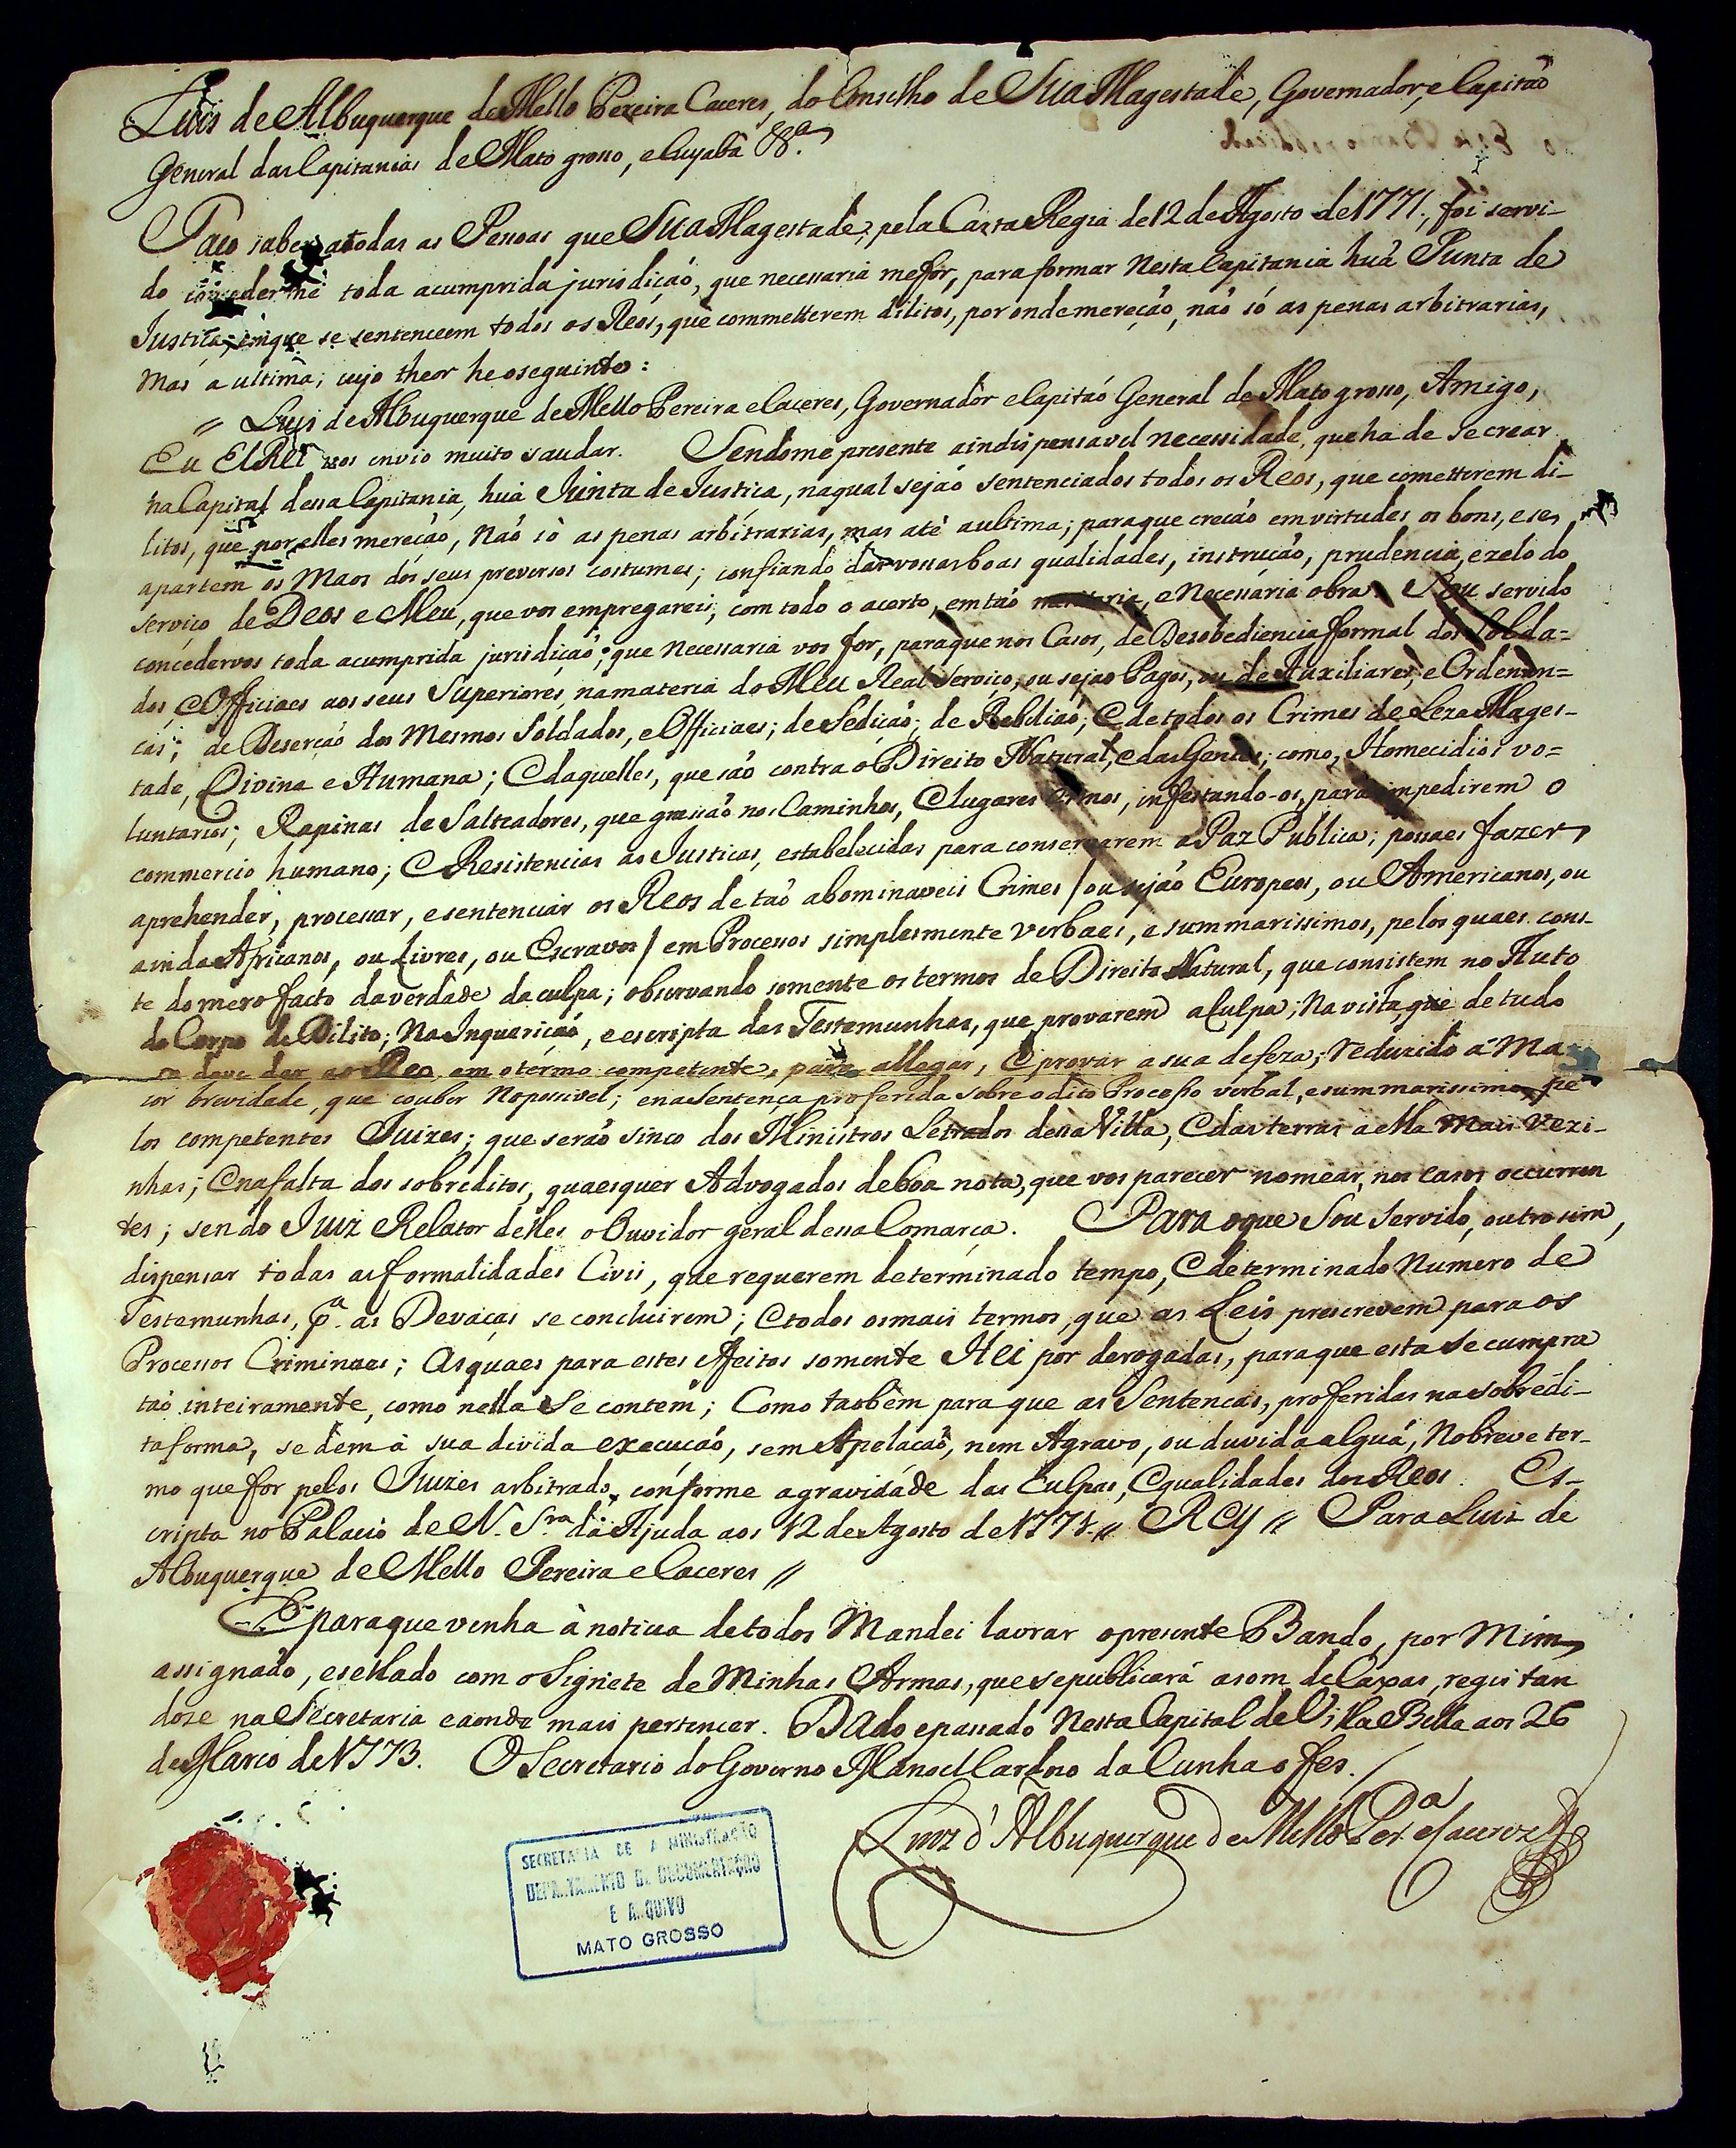 Luis de Albuquerque de Mello Pereira Caceres, do Conselho de Sua Magestade, Governador, e Capitaõ
General das Capitanias de Mato grosso, e Cuyabâ &.ª
Faço saber atodas as Pessoas que Sua Magestade, pela Carta Regia de 12 de Agosto de 1771, foi servi-
do conceder me toda acumprida jurisdiçaõ, que necessaria me for, para formar Nesta Capitania huã Junta de
Justiça, emque se sentenceem todos os Reós, que commetterem dilitos, por onde mereçaõ, naõ só as penas arbitrarias,
Mas a ultima; cujo theor he oseguinte:
" Luis de Albuquerque de Mello Pereira e Caceres, Governador e Capitaõ General de Mato grosso, Amigo,
Eu ElRei vos envio muito saudar. Sendome presente aindispensavel necessidade, que ha de se crear
na Capital dessa Capitania, huã Junta de Justiça, naqual sejaõ sentenciados todos os Reos, que cometterem di-
litos, que por elles mereçaõ, Naõ sò as penas arbitrarias, mas atè aultima; paraque creçaõ em virtudes os bons, e se
apartem os Maos dos seus preversos costumes; confiando das vossas boas qualidades, instruçaõ, prudencia, e zelo do
serviço de Deos e Meu, que vos empregareis, com todo o acerto, em taõ meritoria, e Necessária obra. Sou servido
concedervos toda acumprida jurisdiçaõ, que Necessaria vos for, paraque nos Casos, de Desobediencia formal dos Solda=
dos, e Officiaes aos seus Superiores, namateria do Meu Real Serviço, ou sejaõ Pagos, ou de Auxiliares, e Ordenan=
cas; de Deserçaõ dos Mesmos Soldados, e Officiaes; de Sediçaõ; de Rebeliaõ; E detodos os Crimes de Leza Mages-
tade, Divina e Humana; E daquelles, que saõ contra o Direito Natural, e das Gentes; como, Homecidios vo=
luntarios; Rapinas de Salteadores, que grassaõ nos Caminhos, E lugares ermos, infestando-os, para impedirem o
commercio humano; E Resistencias as Justiças, estabelecidas para conservarem a Paz Publica; possaes fazer
aprehender, processar, e sentenciar os Reos de taõ abominaveis Crimes / ou sejaõ Europeos, ou Americanos, ou
ainda Africanos, ou Livres, ou Escravos / em Processos simplesmente Verbaes, e summarissimos, pelos quaes cons-
te do mero facto daverdade da culpa; observando somente os termos de Direito Natural, que consistem no Auto
do Corpo de Dilito; Na Inquariçaõ, e escripta das Testemunhas, que provarem a Culpa; Na vista que de tudo
se deve dar ao Reo, em o termo competente, para allegar, E provar a sua defeza; reduzido á Ma-
ior brevidade, que couber No possivel; e na Sentença proferida sobre o dito Processo verbal, e summarissimo, pe-
los competentes Juizes; que seraõ sinco dos Ministros Letrados dessa Villa, E das terras a ella mais Vezi-
nhas; E na falta dos sobreditos, quaesquer Advogados deboa nota, que vos parecer nomear, nos Casos occurren
tes; sendo Juiz Relator delles o Ouvidor geral dessa Comarca. Para oque Sou Servido, outro sim,
dispensar todas as formalidades Civis, que requerem determinado tempo, E determinado Numero de
Testemunhas, pª. as Devaças se concluirem; E todos osmais termos, que as Leis prescrevem para os
Processos Criminaes; As quaes para estes effeitos somente Hei por derogadas, paraque esta se cumpra
taõ inteiramente, como nella se contem; Como taobêm para que as Sentencas, proferidas na sobredi-
ta forma, se dem à sua devida execuçaõ, sem Apelaçaõ, nem Agravo, ou duvida alguã, No breve ter-
mo que for pelos Juizes arbitrado, conforme a gravidade das Culpas, E qualidades dos Reos. Es-
cripta no Palacio de N. Sra. da Ajuda aos 12 de Agosto de 1771 // Rey // Para Luiz de
Albuquerque de Mello Pereira e Caceres //
E paraque venha à noticia detodos Mandei lavrar opresente Bando, por Mim
assignado, e sellado com o Signete de Minhas Armas, que se publicará asom de Caxas, registan
dose na Secretaria e aonde mais pertencer. Dado e passado Nesta Capital de Villa Bella aos 26
de Marco de 1773. O Secretario do Governo Manoel Cardozo da Cunha o fes.
Luiz d'Albuquerque de Mello Per.ª e Caceres
SECRETARIA DE ADMINISTRAÇÃO
DEPARTAMENTO DE DOCUMENTAÇÃO
E ARQUIVO
MATO GROSSO